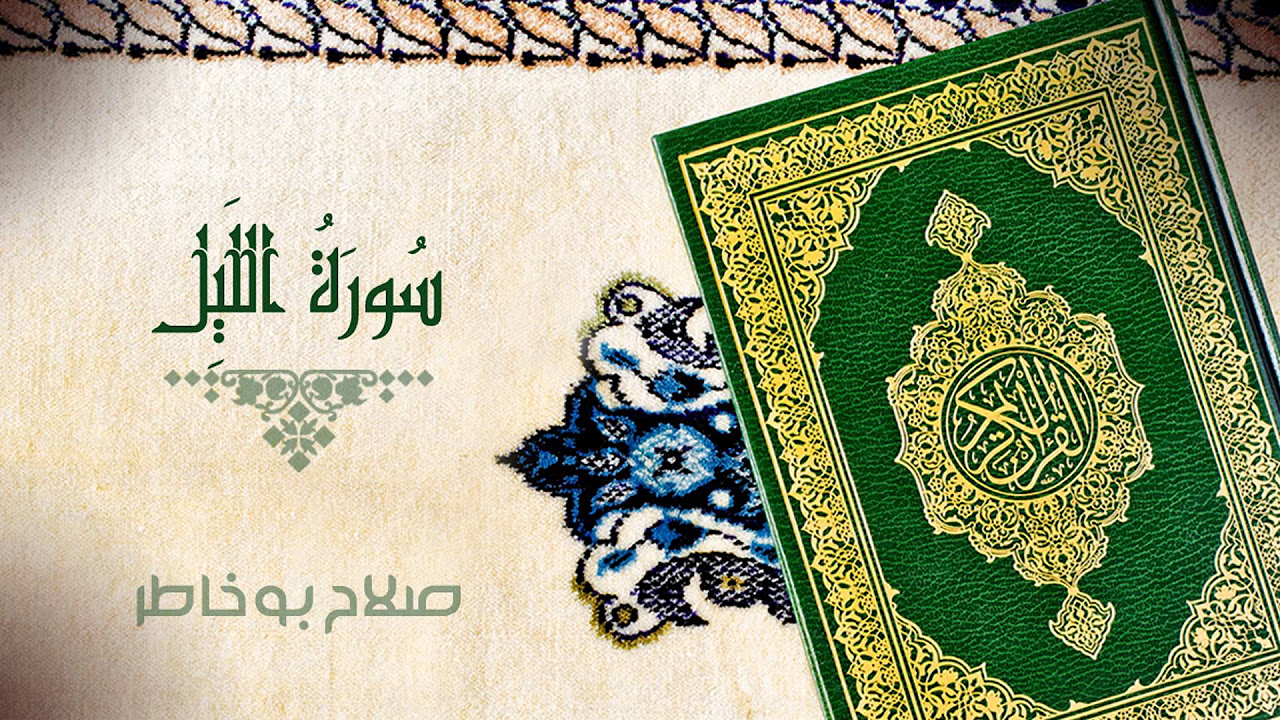 سُورَةُ اللَّيْلِ
صلاح بو خاطر
القرآن الكريم